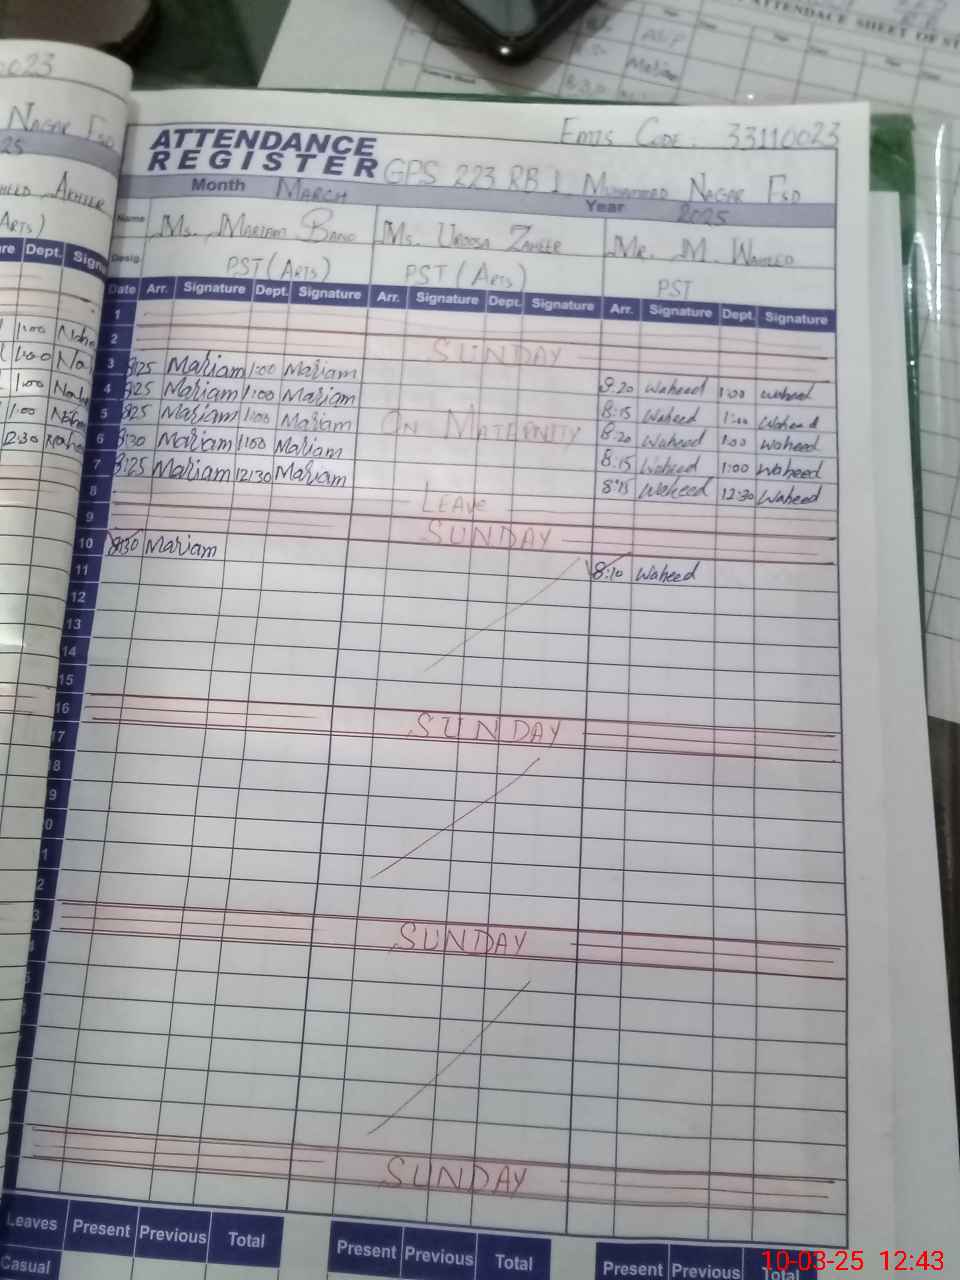 ATTENDACE SHEET OF
0023
Emis Code. 33110023
ATTENDANCE
REGISTER GPS 223 RB 1 Muhammed Nagar Fsd
Nagar Fsd
Month March Year 2025
25
Akhter
Name Ms. Mariam Bano Ms. Uroosa Zaheer Mr. M. Waheed
Arts)
Desig. PST (Arts) PST (Arts) PST
re Dept. Signa
Date Arr. Signature Dept. Signature Arr. Signature Dept. Signature Arr. Signature Dept. Signature
1
2 SUNDAY
3 8:25 Mariam 1:00 Mariam 8:20 Waheed 1:00 Waheed
4 8:25 Mariam 1:00 Mariam 8:15 Waheed 1:00 Waheed
5 8:25 Mariam 1:00 Mariam On Maternity 8:20 Waheed 1:00 Waheed
6 8:30 Mariam 1:00 Mariam 8:15 Waheed 1:00 Waheed
7 8:25 Mariam 12:30 Mariam 8:15 Waheed 12:30 Waheed
1:00
1:00
1:00
1:00
12:30
8 Leave
9 SUNDAY
10 8:30 Mariam 8:10 Waheed
11
12
13
14
15
16 SUNDAY
17
8
9
0
1
2
3 SUNDAY
SUNDAY
Leaves Present Previous Total Present Previous Total Present Previous Total
Casual
10-03-25 12:43